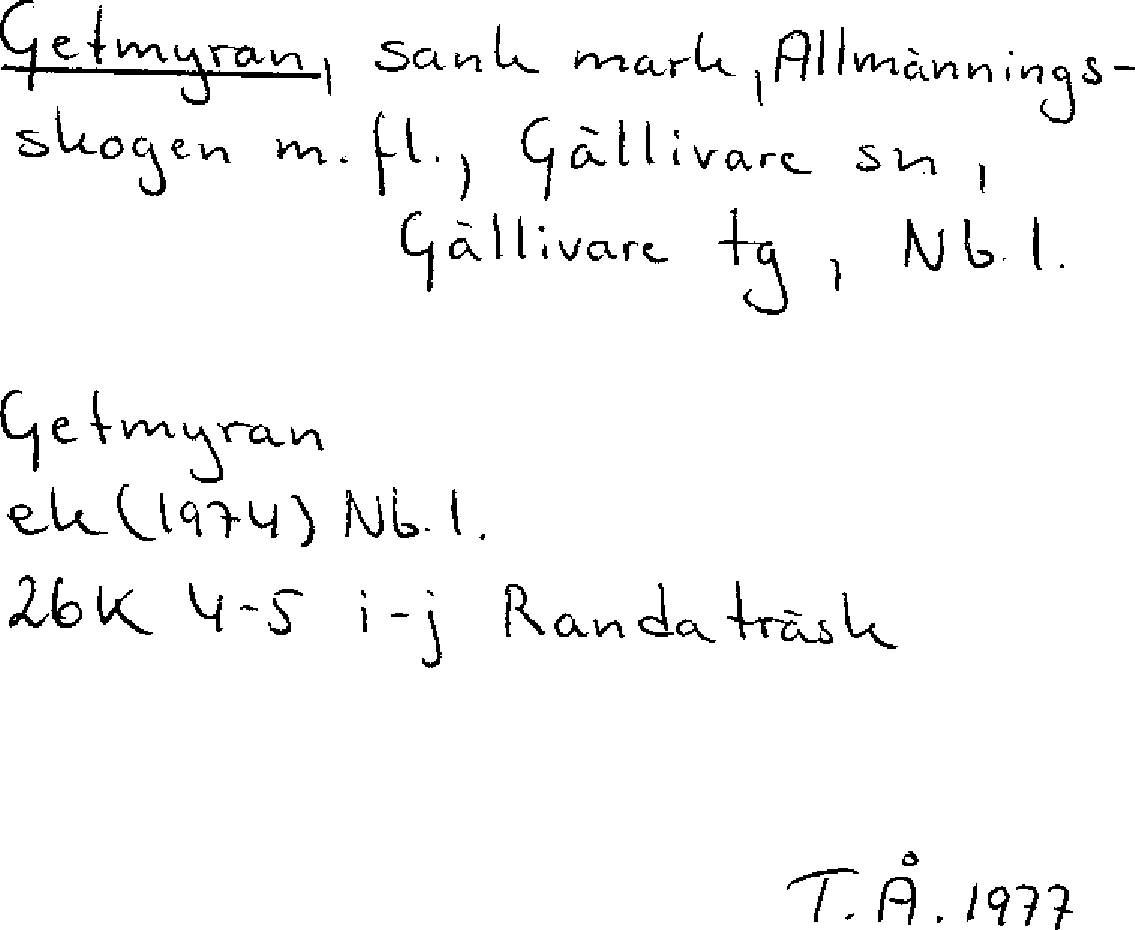 Getmyran, sank mark, Allmännings-
skogen m. fl., Gällivare sn,
Gällivare tg, Nb. l.
Getmyran
ek (1974) Nb. l.
26K 4-5 i-j Randaträsk
T. Å. 1977